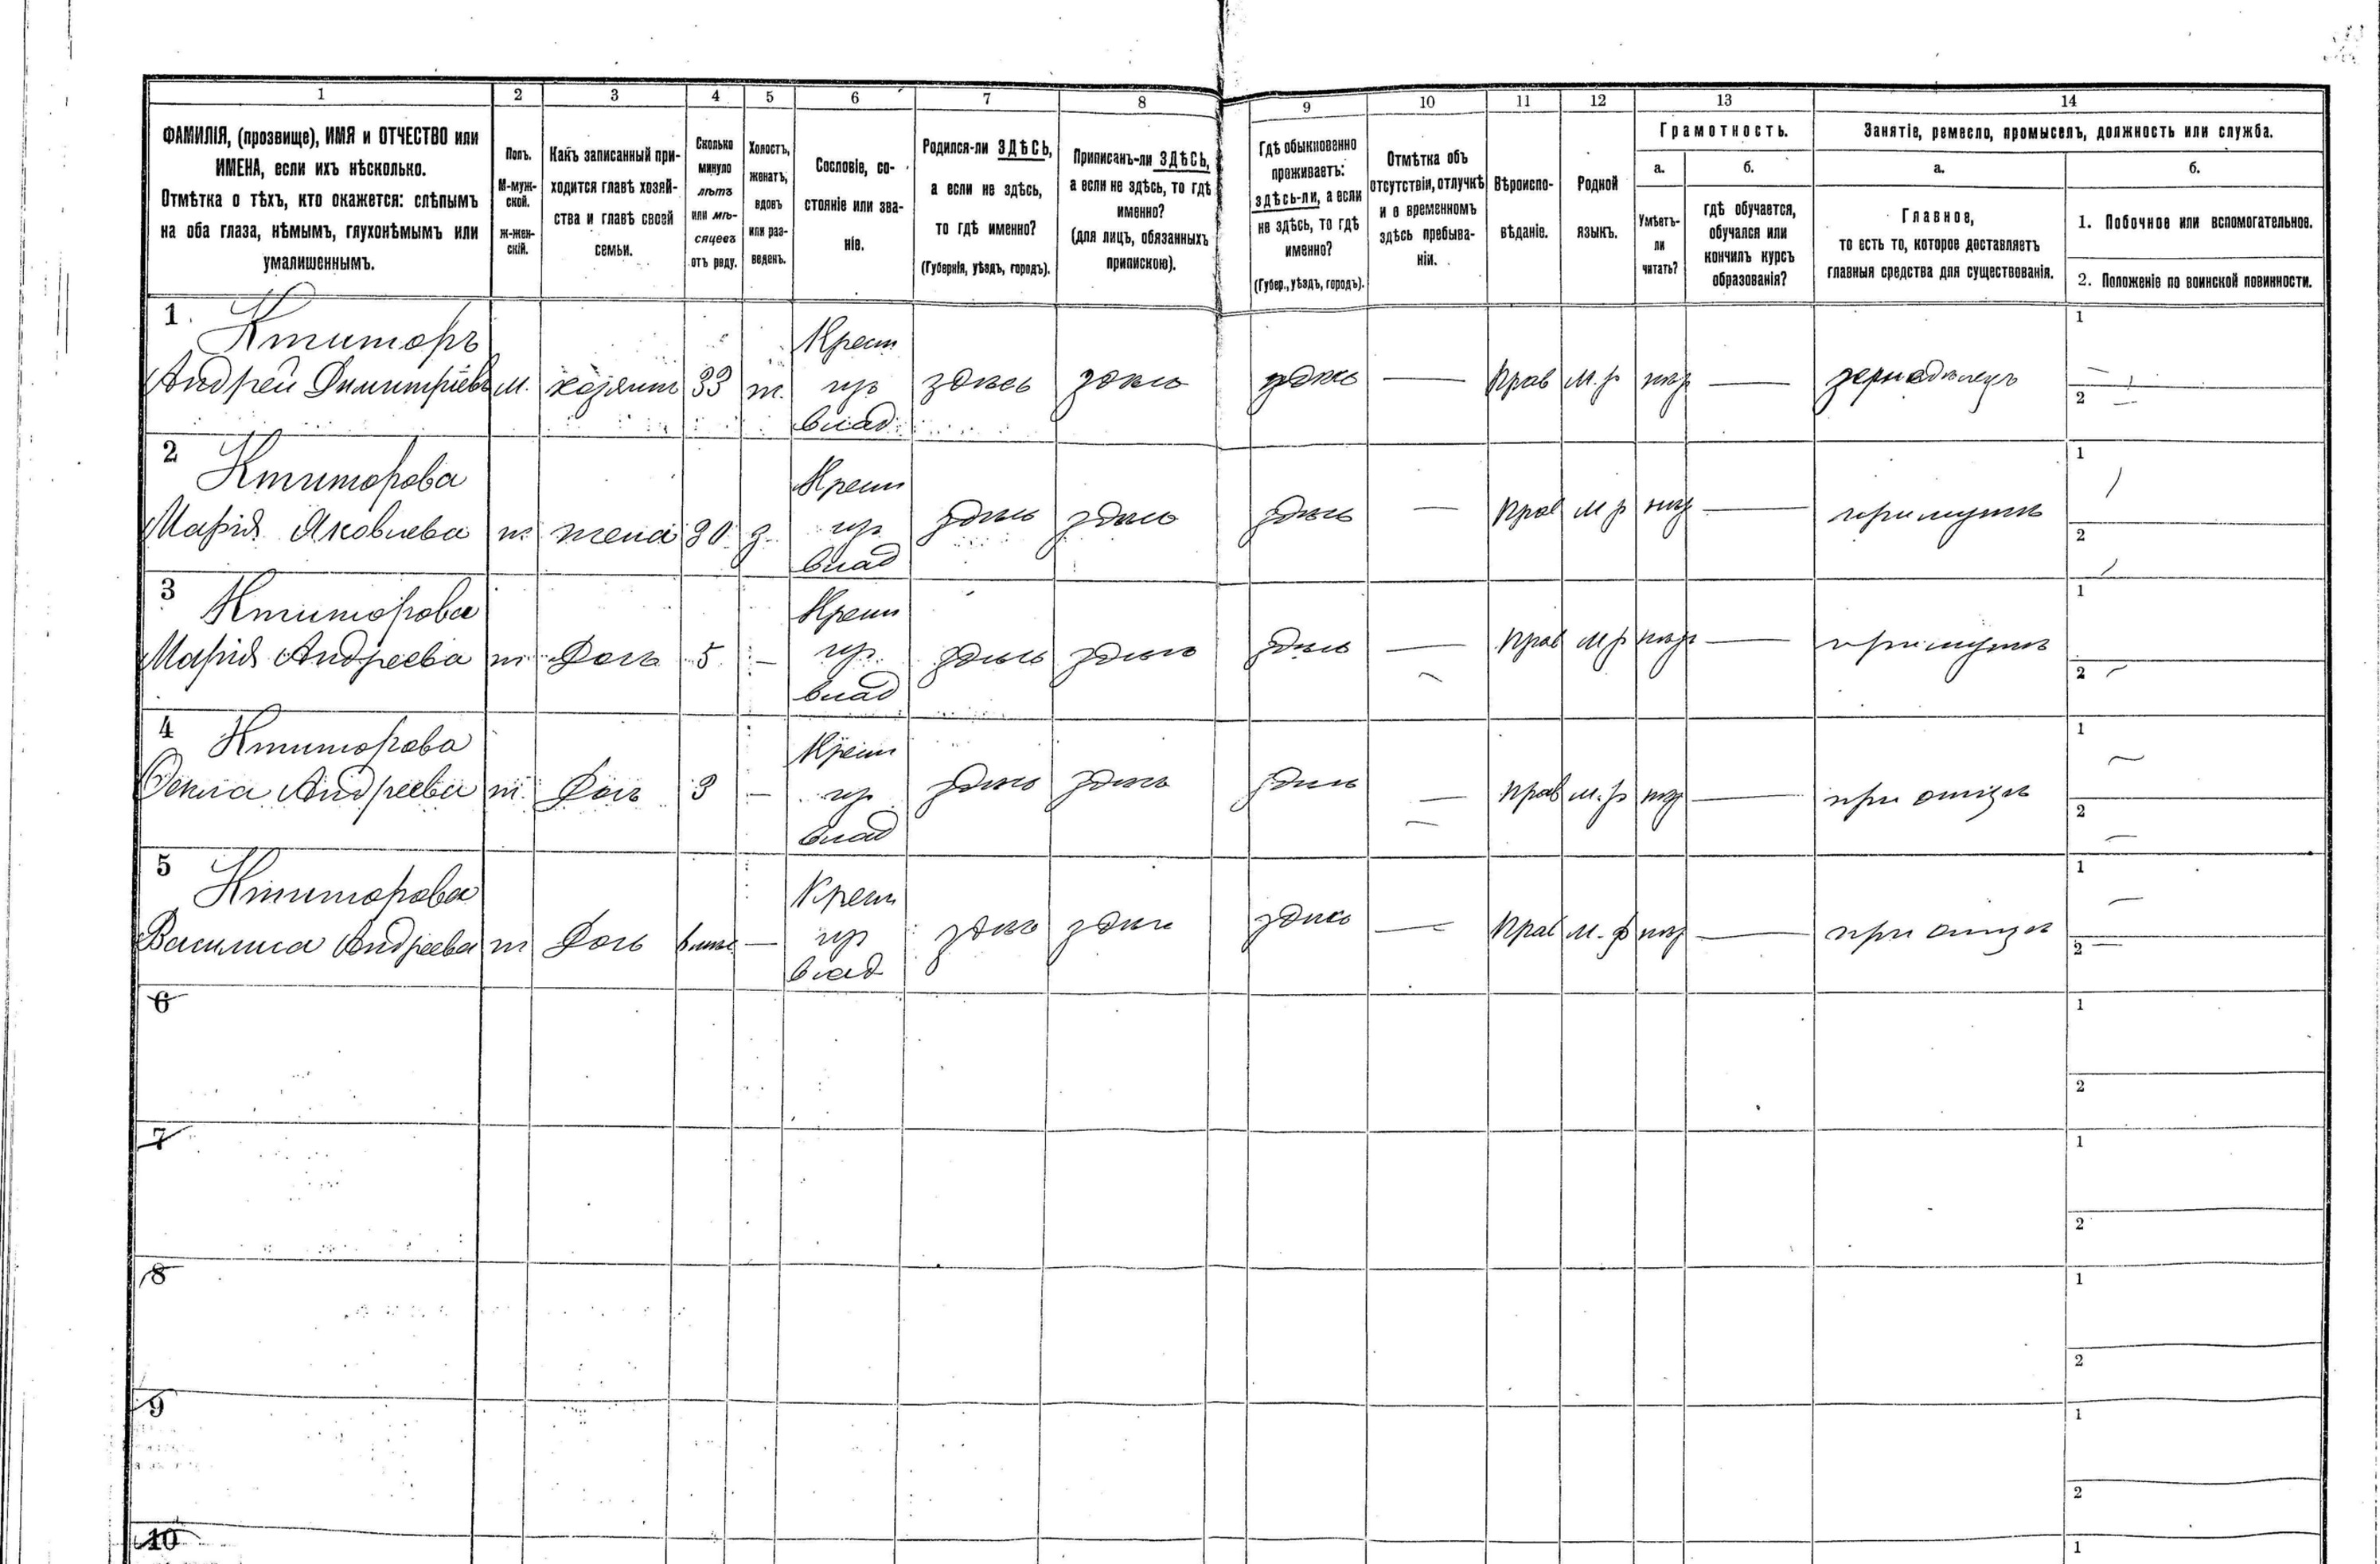 1 2 3 4 5 6 7 8 9 10 11 12 13 14
ФАМИЛІЯ, (прозвище), ИМЯ и ОТЧЕСТВО или
ИМЕНА, если ихъ нѣсколько.
Отмѣтка о тѣхъ, кто окажется: слѣпымъ
на оба глаза, нѣмымъ, глухонѣмымъ или
умалишеннымъ.
Полъ.
М-муж-
ской.
Ж-жен-
скій.
Какъ записанный при-
ходится главѣ хозяй-
ства и главѣ своей
семьи.
Сколько
минуло
лѣтъ
или мѣ-
сяцевъ
отъ роду.
Холостъ,
женатъ,
вдовъ
или раз-
веденъ.
Сословіе, со-
стояніе или зва-
ніе.
Родился-ли ЗДѢСЬ,
а если не здѣсь,
то гдѣ именно?
(Губернія, уѣздъ, городъ).
Приписанъ-ли ЗДѢСЬ,
а если не здѣсь, то гдѣ
именно?
(для лицъ, обязанныхъ
припискою).
Гдѣ обыкновенно
проживаетъ:
здѣсь-ли, а если
не здѣсь, то гдѣ
именно?
(Губер., уѣздъ, городъ).
Отмѣтка объ
отсутствіи, отлучкѣ
и о временномъ
здѣсь пребыва-
ніи.
Вѣроиспо-
вѣданіе.
Родной
языкъ.
Грамотность.
а.
Умѣетъ-
ли
читать?
б.
гдѣ обучается,
обучался или
кончилъ курсъ
образованія?
Занятіе, ремесло, промыселъ, должность или служба.
а.
Главное,
то есть то, которое доставляетъ
главныя средства для существованія.
б.
1. Побочное или вспомогательное.
2. Положеніе по воинской повинности.
1. Ктиторъ Крест 1
Андрей Димитріевъ м. хозяинъ 33 ж. здѣсь здѣсь здѣсь — Прав м. р — 2
влад
2 Ктиторова Крест 1
Марія Яковлева ж. жена 30 з. здѣсь здѣсь здѣсь — Прав м р — при мужѣ 2
влад
3 Ктиторова Крест 1
Марія Андреева ж дочь 5 — здѣсь здѣсь здѣсь — Прав м р — 2
влад
4 Ктиторова Крест 1
Андреева ж. дочь 3 — здѣсь здѣсь здѣсь — Прав м. р — при отцѣ 2
влад
5 Ктиторова Крест 1
Василиса Андреева ж дочь — здѣсь здѣсь здѣсь — Прав м. р — при отцѣ 2
влад
6 1
2
7 1
2
8 1
2
9 1
2
10 1